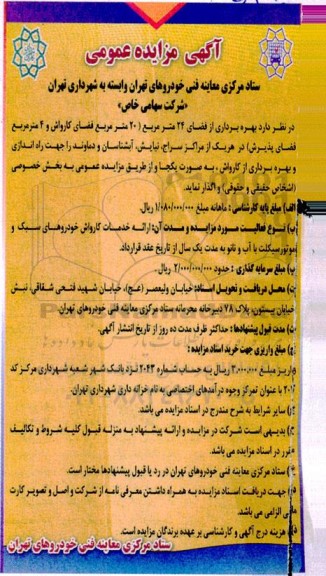 آگهی مزایده عمومی
ستاد مرکزی معاینه فنی خودروهای تهران وابسته به شهرداری تهران
«شرکت سهامی خاص»
در نظر دارد بهره برداری از فضای ۲۴ متر مربع (۲۰ متر مربع فضای کارواش و ۴ مترمربع
فضای پذیرش) در هریک از مراکز سراج، نیایش، آبشناسان و دماوند را جهت راه اندازی
و بهره برداری از کارواش، به صورت یکجا و از طریق مزایده عمومی به بخش خصوصی
(اشخاص حقیقی و حقوقی) واگذار نماید.
الف) مبلغ پایه کارشناسی: ماهانه مبلغ ۱/۰۸۰/۰۰۰/۰۰۰ ریال.
ب) نوع فعالیت مورد مزایده و مدت آن: ارائه خدمات کارواش خودروهای سبک و
موتورسیکلت با آب و نانو به مدت یک سال از تاریخ عقد قرارداد.
پ) مبلغ سرمایه گذاری: حدود ۲/۰۰۰/۰۰۰/۰۰۰ ریال.
ت) محل دریافت و تحویل اسناد: خیابان ولیعصر (عج)، خیابان شهید فتحی شقاقی، نبش
خیابان بیستون، پلاک ۷۸ دبیرخانه محرمانه ستاد مرکزی معاینه فنی خودروهای تهران
ث) مدت قبول پیشنهادها: حداکثر ظرف مدت ده روز از تاریخ انتشار آگهی.
ج) مبلغ واریزی جهت خرید اسناد مزایده:
واریز مبلغ ۳,۰۰۰,۰۰۰ ریال به حساب شماره ۲۰۴۳ نزد بانک شهر شعبه شهرداری مرکز کد
۲۰۷ با عنوان تمرکز وجوه درآمدهای اختصاصی به نام خزانه داری شهرداری تهران.
سایر شرایط به شرح مندرج در اسناد مزایده می باشد.
بدیهی است شرکت در مزایده و ارائه پیشنهاد به منزله قبول کلیه شروط و تکالیف
مقرر در اسناد مزایده می باشد.
ستاد مرکزی معاینه فنی خودروهای تهران در رد یا قبول پیشنهادها مختار است.
جهت دریافت اسناد مزایده به همراه داشتن معرفی نامه از شرکت و اصل و تصویر کارت
ملی الزامی می باشد.
هزینه درج آگهی و کارشناسی بر عهده برندگان مزایده است.
ستاد مرکزی معاینه فنی خودروهای تهران